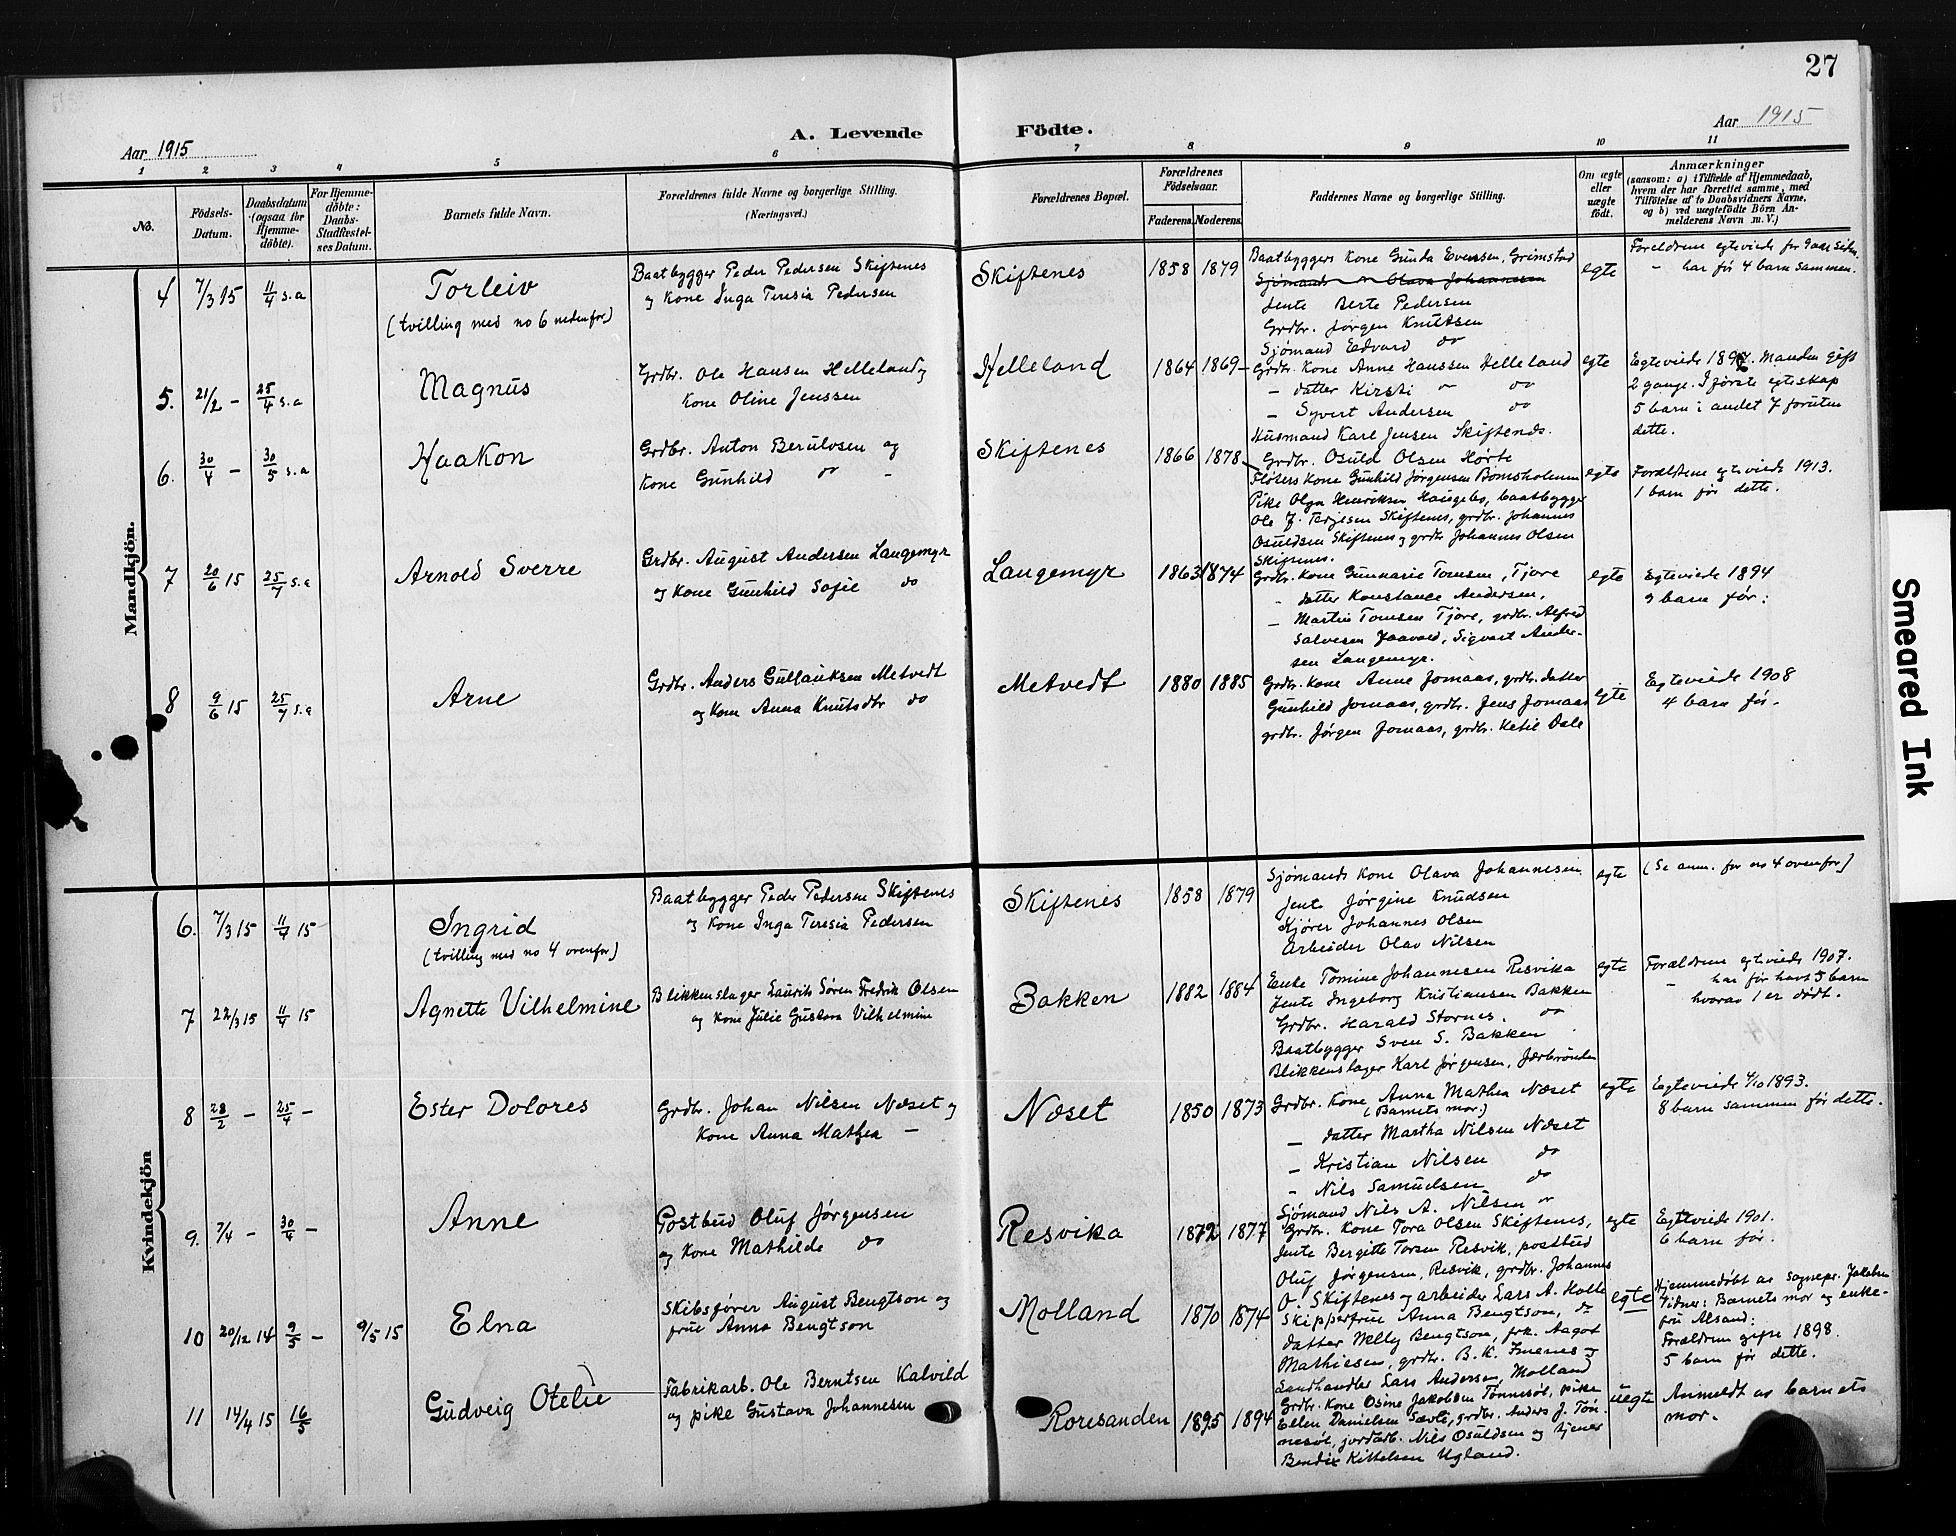 27
Aar 1915
A. Levende Födte.
Aar 1915
1 2 3 4 5 6 7 8 9 10 11
No.
Födsels-Datum.
Daabsdatum (ogsaa for Hjemmedöbte).
For Hjemmedöbte: Daabs-Stadfæstelses Datum.
Barnets fulde Navn.
Forældrenes fulde Navne og borgerlige Stilling. (Næringsvei.)
Forældrenes Bopæl.
Forældrenes Födselsaar.
Faderens. Moderens.
Faddernes Navne og borgerlige Stilling.
Om ægte eller uægte födt.
Anmærkninger
(saasom: a) i Tilfælde af Hjemmedaab,
hvem der har forrettet samme, med
Tilföielse af to Daabsvidners Navne,
og b) ved uægtefödte Börn Anmelderens Navn m. V.)
Mandkjön.
4 7/3 15 11/4 s.a
Torleiv
(tvilling med no 6 nedenfor)
Baatbygger Peder Pedersen Skiftenes
og Kone Inga Teresia Pedersen
Skiftenes 1858 1879
Baatbyggers Kone Gunda Evensen, Grimstad
Sjömands " Olava Johannesen
Jente Berte Pedersen
Grdbr. Jørgen Knutsen
Sjømand Edvard do
egte
Foreldrene egteviede for 9 aar siden.
- har før 4 barn sammen.
5. 21/2 - 25/4 s.a
Magnus
Grdbr. Ole Hansen Helleland og
Kone Oline Jenssen
Helleland 1864 1869
Grdbr. Kone Anne Hanssen Helleland
- datter Kirsti " do
- Syvert Andersen do
Husmand Karl Jensen Skiftenes.
Grdbr. Osuld Olsen Hørte
egte
Egteviede 1897. Manden gift
2 gange. I første egteskap
5 barn i andet 7 foruten
dette.
6. 30/4 - 30/5 s.a
Haakon
Grdbr. Anton Berulvsen og
Kone Gunhild do -
Skiftenes 1866 1878
Fløters Kone Gunhild Jørgensen Bomsholmen
Pike Olga Henriksen Haugebo, baatbygger
Ole J. Terjesen Skiftenes, grdbr. Johannes
Osuldsen Skiftenes og grdbr Johannes Olsen
Skiftenes.
egte
Forældrene egteviede 1913.
1 barn før dette.
7 20/6 15 25/7 s.a
Arnold Sverre
Grdbr. August Andersen Langemyr
og Kone Gunhild Sofie do
Langemyr 1863 1874
Grdbr. Kone Gunnarie Tomsen, Tjore
- datter Konstance Andersen,
- Martin Tomsen Tjore, grdbr. Alfred
Salvesen Jaavold, Sigvart Andersen Langemyr.
egte
Egteviede 1894
9 barn før:
8 9/6 15 25/7 s.a
Arne
Grdbr. Anders Gullauksen Metvedt
og Kone Anna Knutsdtr do
Metvedt 1880 1885
Grdbr. Kone Anne Jomaas, grdbr. datter
Gunhild Jomaas, grdbr. Jens Jomaas
grdbr. Jørgen Jomaas, grdbr. Ketil Dale
egte
Egteviede 1908
4 barn før.
Kvindekjön
6. 7/3 15 11/4 15
Ingrid
(tvilling med no 4 ovenfor)
Baatbygger Peder Pedersen Skiftenes
og Kone Inga Teresia Pedersen
Skiftenes 1858 1879
Sjømands Kone Olava Johannesen
Jente Jørgine Knudsen
Kjører Johannes Olsen
Arbeider Olav Nilsen
egte
(Se anm. for no 4 ovenfor)
7 22/3 15 11/4 15
Agnette Vilhelmine
Blikkenslager Laurits Søren Fredrik Olsen
og Kone Julie Gustava Vilhelmine
Bakken 1882 1884
Enke Tomine Johannesen Resvika
Jente Ingeborg Kristiansen Bakken
Grdbr. Harald Stornes. do
Baatbygger Sven S. Bakken
Blikkenslager Karl Jørgensen,
egte
Forældrene egteviede 1907.
- har før havt 5 barn
hvorav 1 er dødt.
8 28/2 - 25/4 -
Ester Dolores
Grdbr. Johan Nilsen Næset og
Kone Anna Mathea -
Næset 1850 1873
Grdbr. Kone Anna Mathea Næset
(Barnets mor.)
- datter Martha Nilsen Næset
- Kristian Nilsen do
- Nils Samuelsen do
Sjømand Nils A. Nilsen "
egte
Egteviede 4/10 1893.
8 barn sammen før dette.
9. 7/4 - 30/4 -
Anne
Postbud Oluf Jørgensen
og Kone Mathilde do
Resvika 1872 1877
Grdbr. Kone Tora Olsen Skiftenes,
Jente Bergitte Torsen Resvik, postbud
Oluf Jørgensen, Resvik, grdbr. Johannes
O. Skiftenes og arbeider Lars A. Holte
egte
Egteviede 1901.
6 barn før.
10 20/12 14 9/5 - 9/5 15
Elna
Skibsfører August Bengtson og
frue Anna Bengtson
Molland 1870 1874
Skipperfrue Anna Bengtson, do
datter Nelly Bengtson, frk. Aagot
Mathiesen, grdbr. B. K. og
Landhandler Lars Andersen, Molland
egte
Hjemmedøbt av sognepr. Jakobsen
Vidner: Barnets mor og enkefru Alsand:
Forældrene gifte 1898.
5 barn før dette.
11 14/4 15 16/5
Gudveig Otelie
Fabrikarb. Ole Berntsen Kalvild
og pike Gustava Johannesen
Roresanden 1895 1894
Grdbr. Kone Osine Jakobsen Tønnesøl, pike
Ellen Danielsen Sævle, grdbr. Anders J. Tønnesøl, jordarb. Nils Osuldsen og tjener
Bendix Kittelsen Ugland.
uegte
Anmeldt av barnets
mor.
Smeared Ink